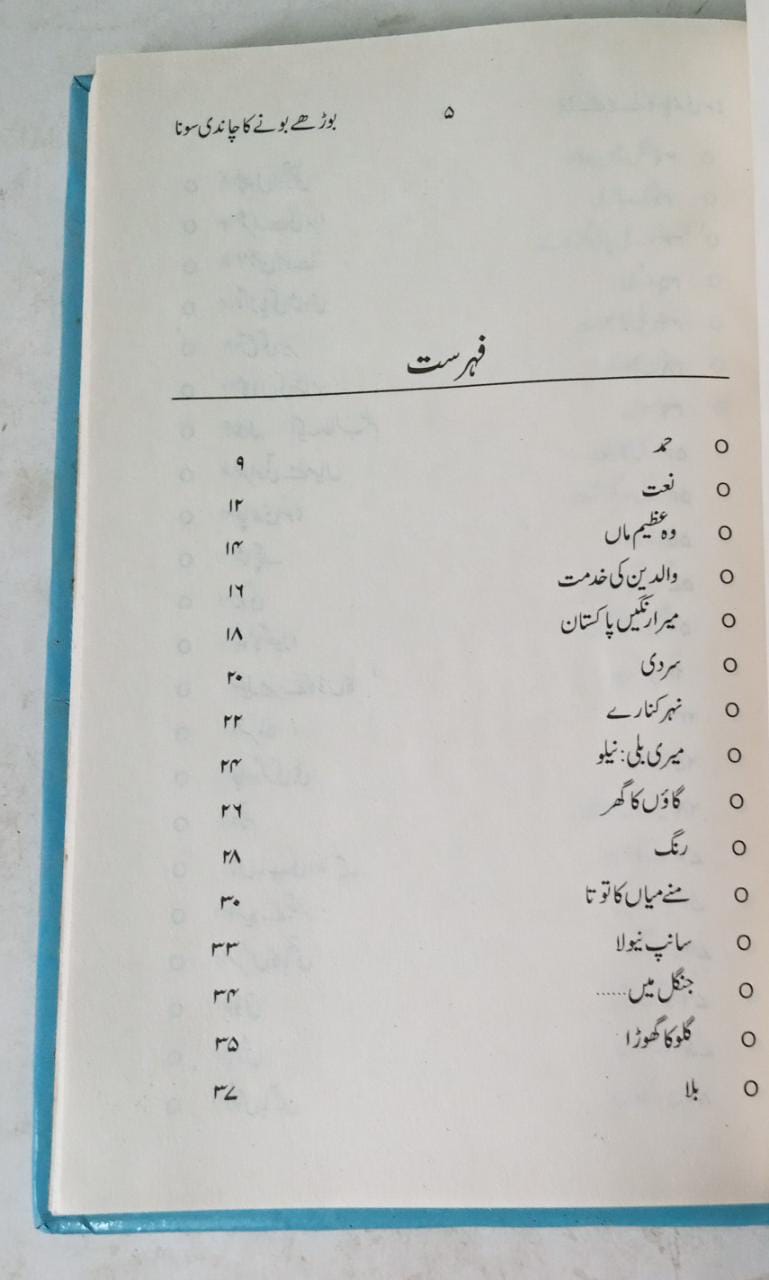 ۵ بوڑھے بونے کا چاندی سونا
فہرست
O حمد ۹
O نعت ۱۲
O وہ عظیم ماں ۱۴
O والدین کی خدمت ۱۶
O میرا رنگیں پاکستان ۱۸
O سردی ۲۰
O نہر کنارے ۲۲
O میری بلی: نیلو ۲۴
O گاؤں کا گھر ۲۶
O رنگ ۲۸
O منے میاں کا توتا ۳۰
O سانپ نیولا ۳۳
O جنگل میں...... ۳۴
O گلو کا گھوڑا ۳۵
O بلا ۳۷